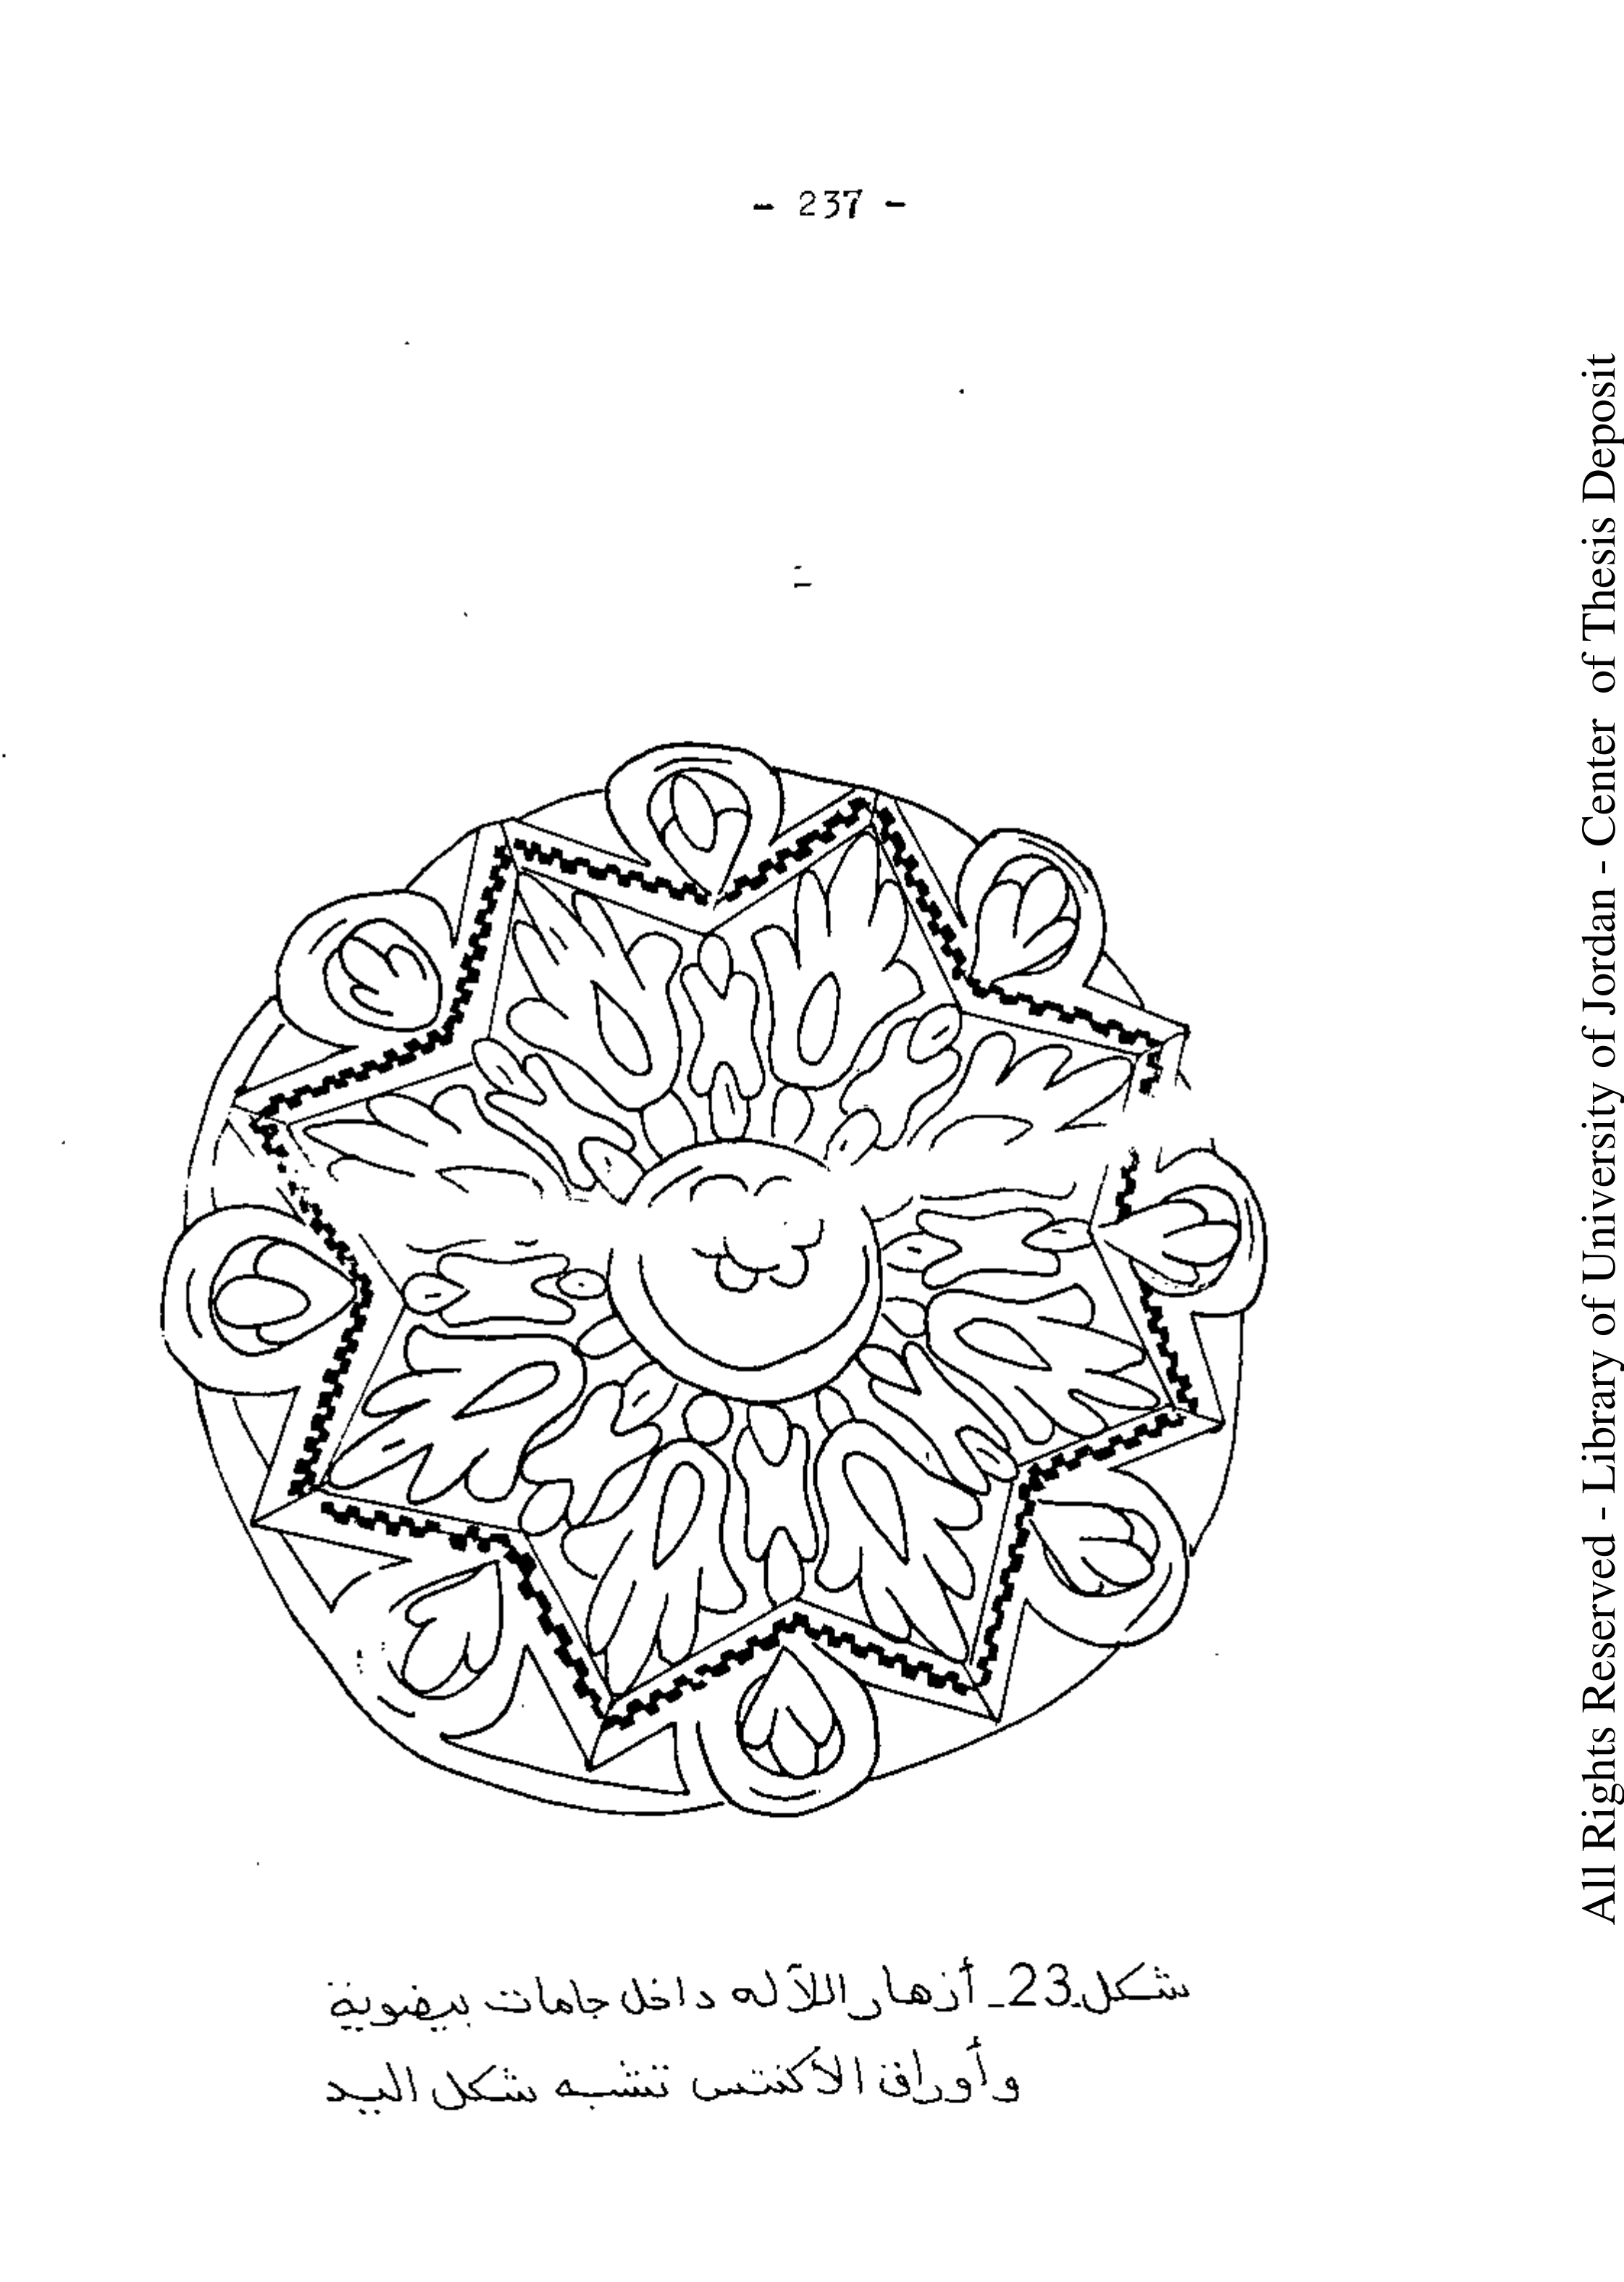 - 237 -
شكل 23 - أزهار اللآله داخل جامات بيضوية
وأوراق الاكنتس تشبه شكل اليد
All Rights Reserved - Library of University of Jordan - Center of Thesis Deposit